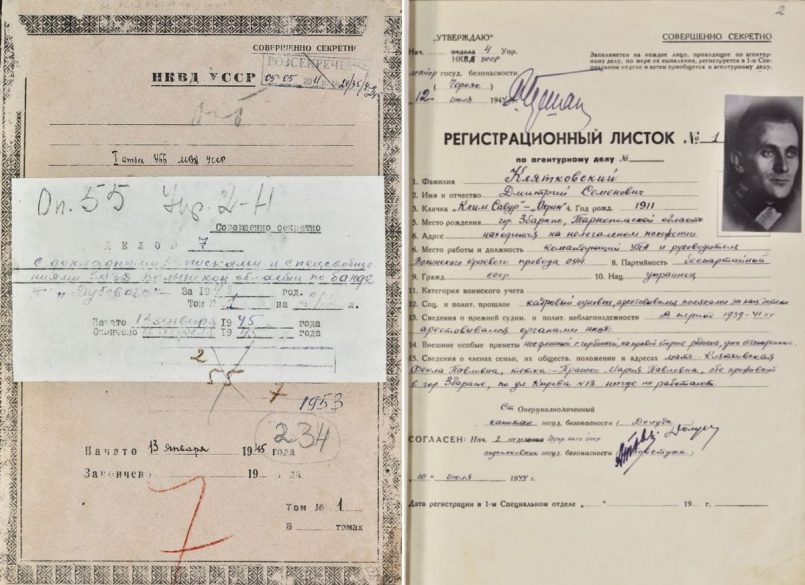 СОВЕРШЕННО СЕКРЕТНО
РОЗСЕКРЕЧЕНО
НКВД УССР
05-05 2011 р.
I отдел УББ МВД УССР
Оп. 55
Совершенно секретно
ДЕЛО № 7
с докладными записками и спецсообще
ниями УНКВД Ровенской области по банде
"Дубового"
За 1945 год.
Том №
Начато 13 января 1945 года
Окончено 1945 года
2
55
7
1953
234
Начато 13 января 1945 года
Закончено 19 года
7
Том № 1
В томах
2
„УТВЕРЖДАЮ"
СОВЕРШЕННО СЕКРЕТНО
Нач. отдела 4 Упр.
НКВД УССР
майор госуд. безопасности
(Черняк)
„12" июля 194
Заполняется на каждое лицо, проходящее по агентур-
ному делу, по мере их выявления, регистрируется в 1-м Спе-
циальном отделе и затем приобщается к агентурному делу.
РЕГИСТРАЦИОННЫЙ ЛИСТОК № 1
по агентурному делу №
1. Фамилия Клятковский
2. Имя и отчество Дмитрий Семенович
3. Кличка „Клим Савур"-„Охрим" 4. Год рожд. 1911
5. Место рождения гор. Збараж, Тарнопольской области
6. Адрес находится на нелегальном положении
7. Место работы и должность Командующий УПА и руководитель
Волынского Краевого провода ОУН 8. Партийность беспартийный
9. Гражд. СССР 10. Нац. украинец
11. Категория воинского учета
12. Соц. и полит. прошлое кадровый оуновец, арестовывался поляками за нац. деят.
13. Сведения о прежней судим. и полит. неблагонадежности В период 1939-41 гг
арестовывался органами НКВД
14. Внешние особые приметы нос длинный с горбинкой, на правой стороне
15. Сведения о членах семьи, их обществ. положении и адресах мать-Клятковская
Фекла Павловна, тетка - Мария Павловна, обе проживают
в гор. Збараж, по ул. Кирова №13 нигде не работают
Ст. Оперуполномоченный
капитан госуд. безопасности (Долуда)
СОГЛАСЕН: Нач. 2 отделения 4 упр НКВД УССР
подполковник госуд. безопасности
„10" июля 1944 г.
Дата регистрации в 1-м Специальном отделе „ " 19 г.